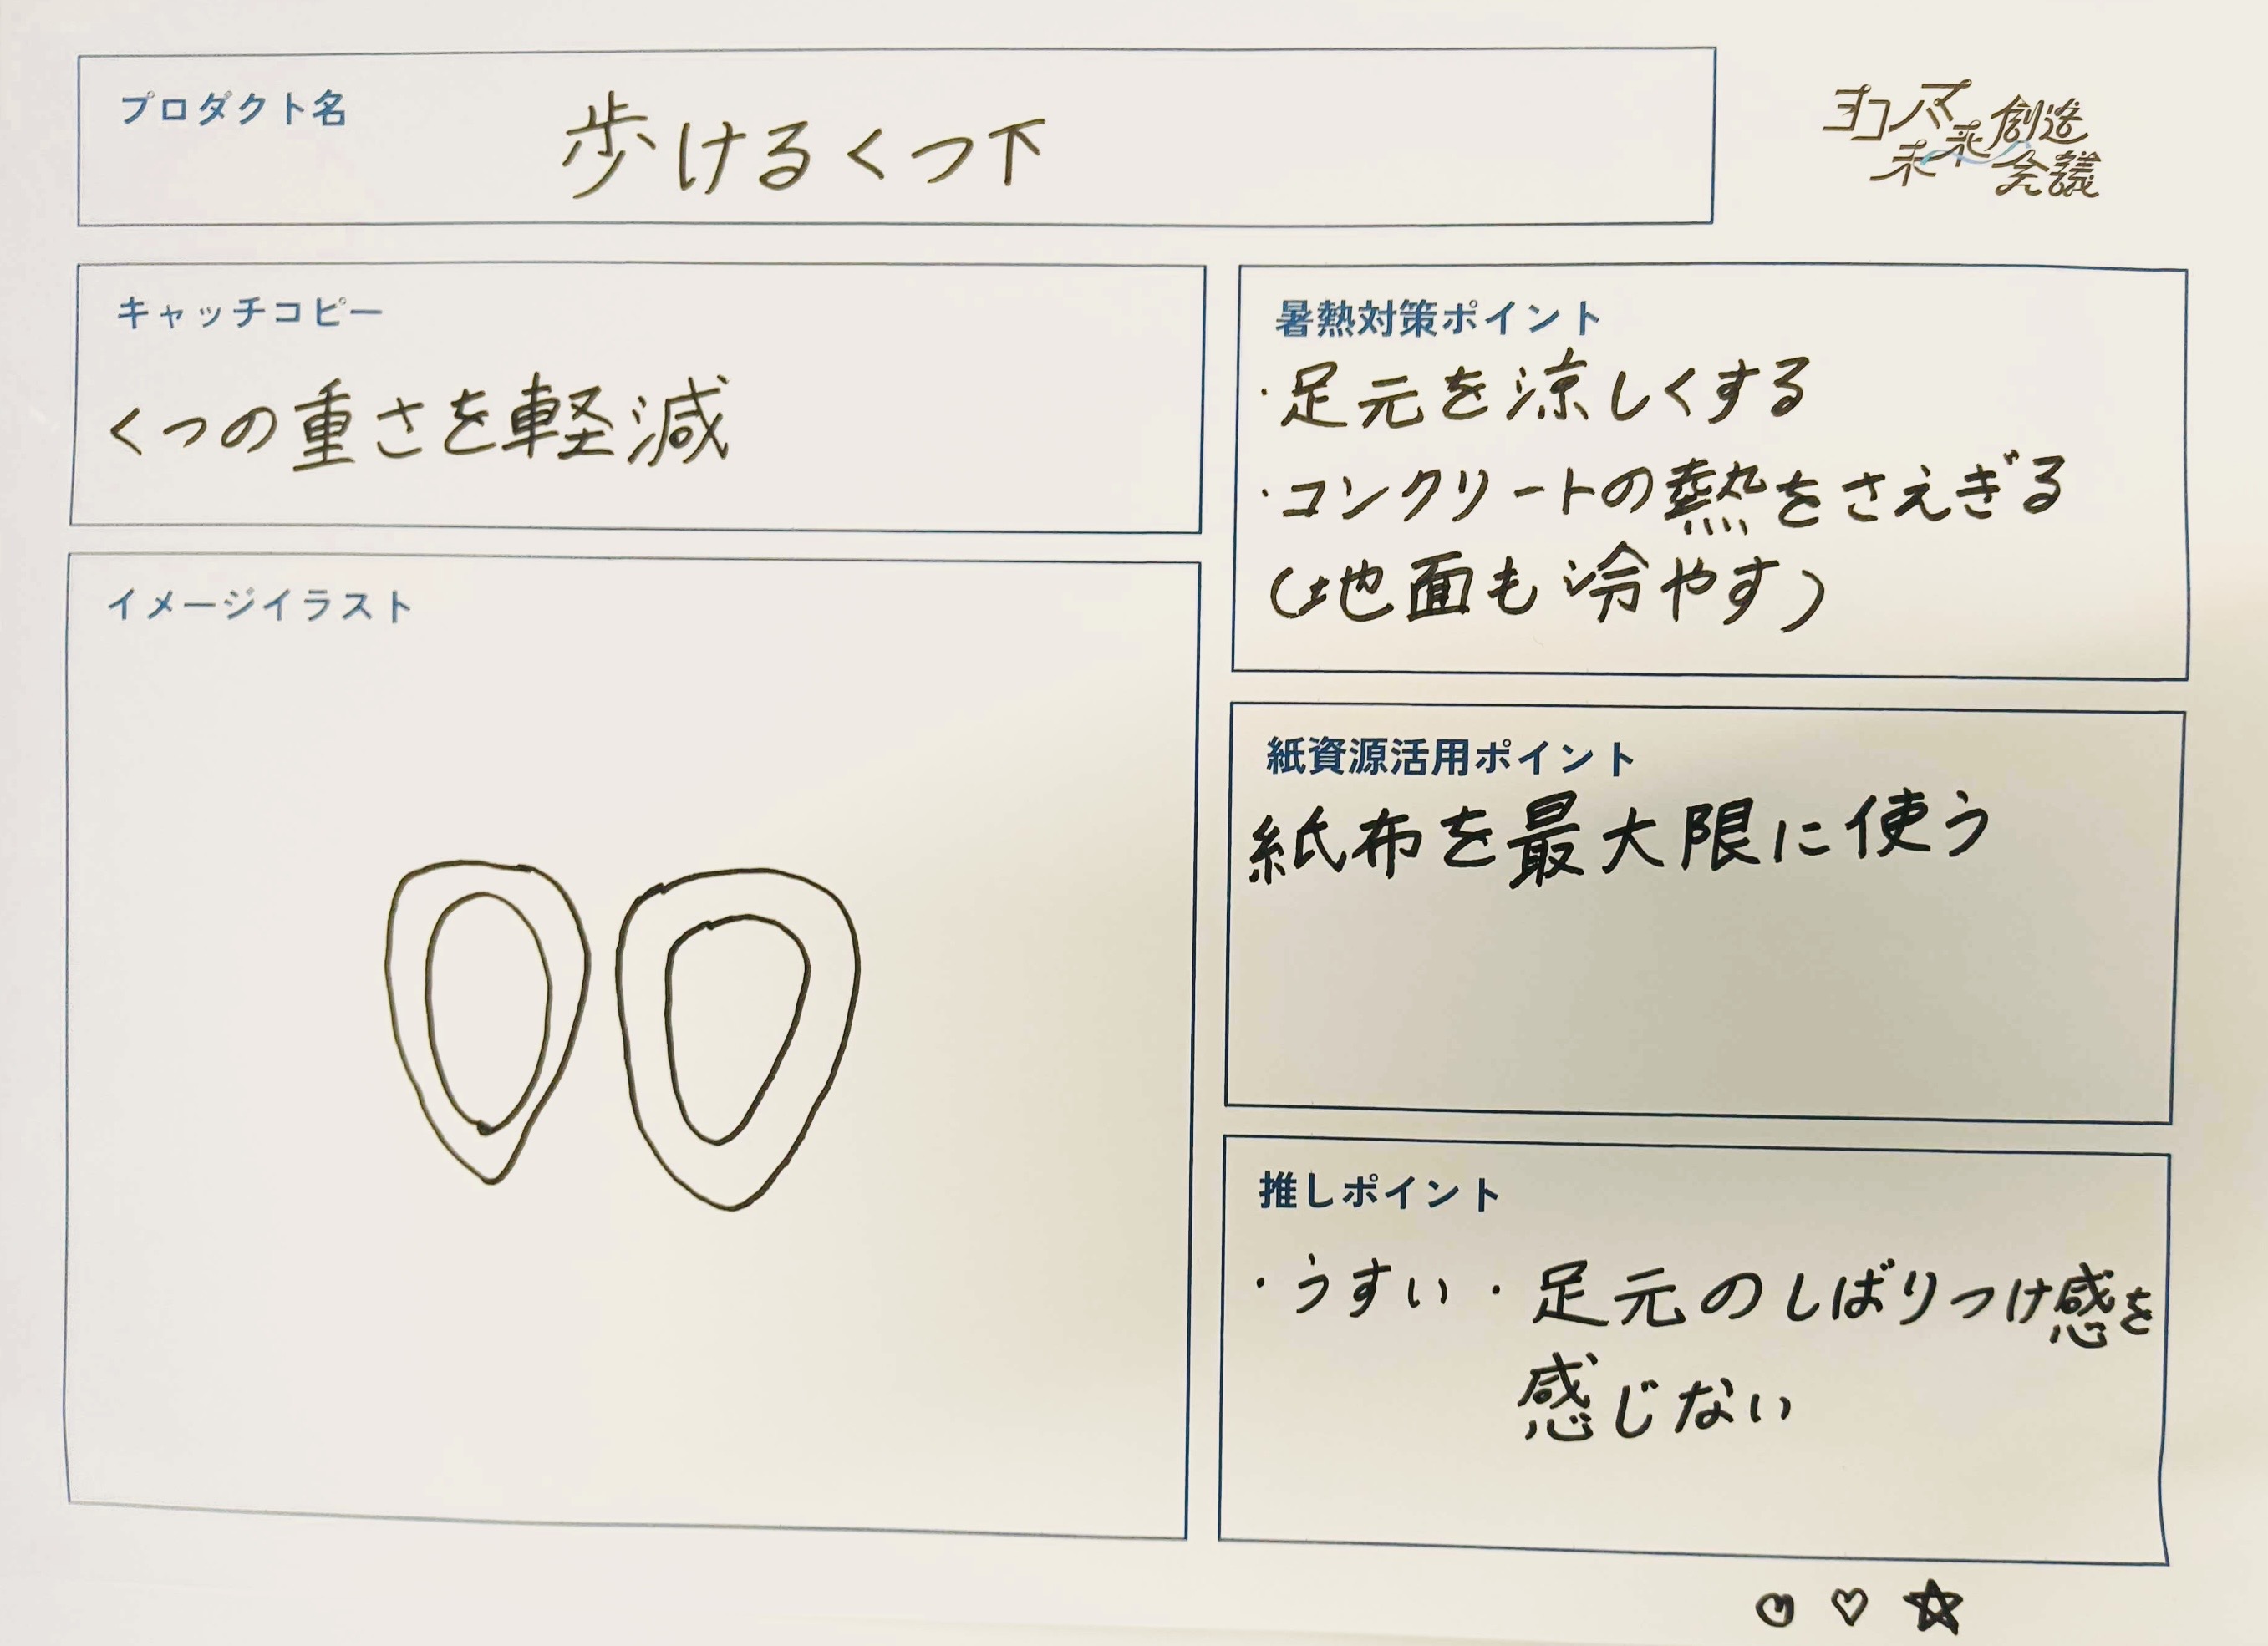 プロダクト名
歩けるくつ下
ヨコハマ
未来創造
会議
キャッチコピー
くつの重さを軽減
イメージイラスト
暑熱対策ポイント
・足元を涼しくする
・コンクリートの熱をさえぎる
(地面も冷やす)
紙資源活用ポイント
紙布を最大限に使う
推しポイント
・うすい・足元のしばりつけ感を
感じない